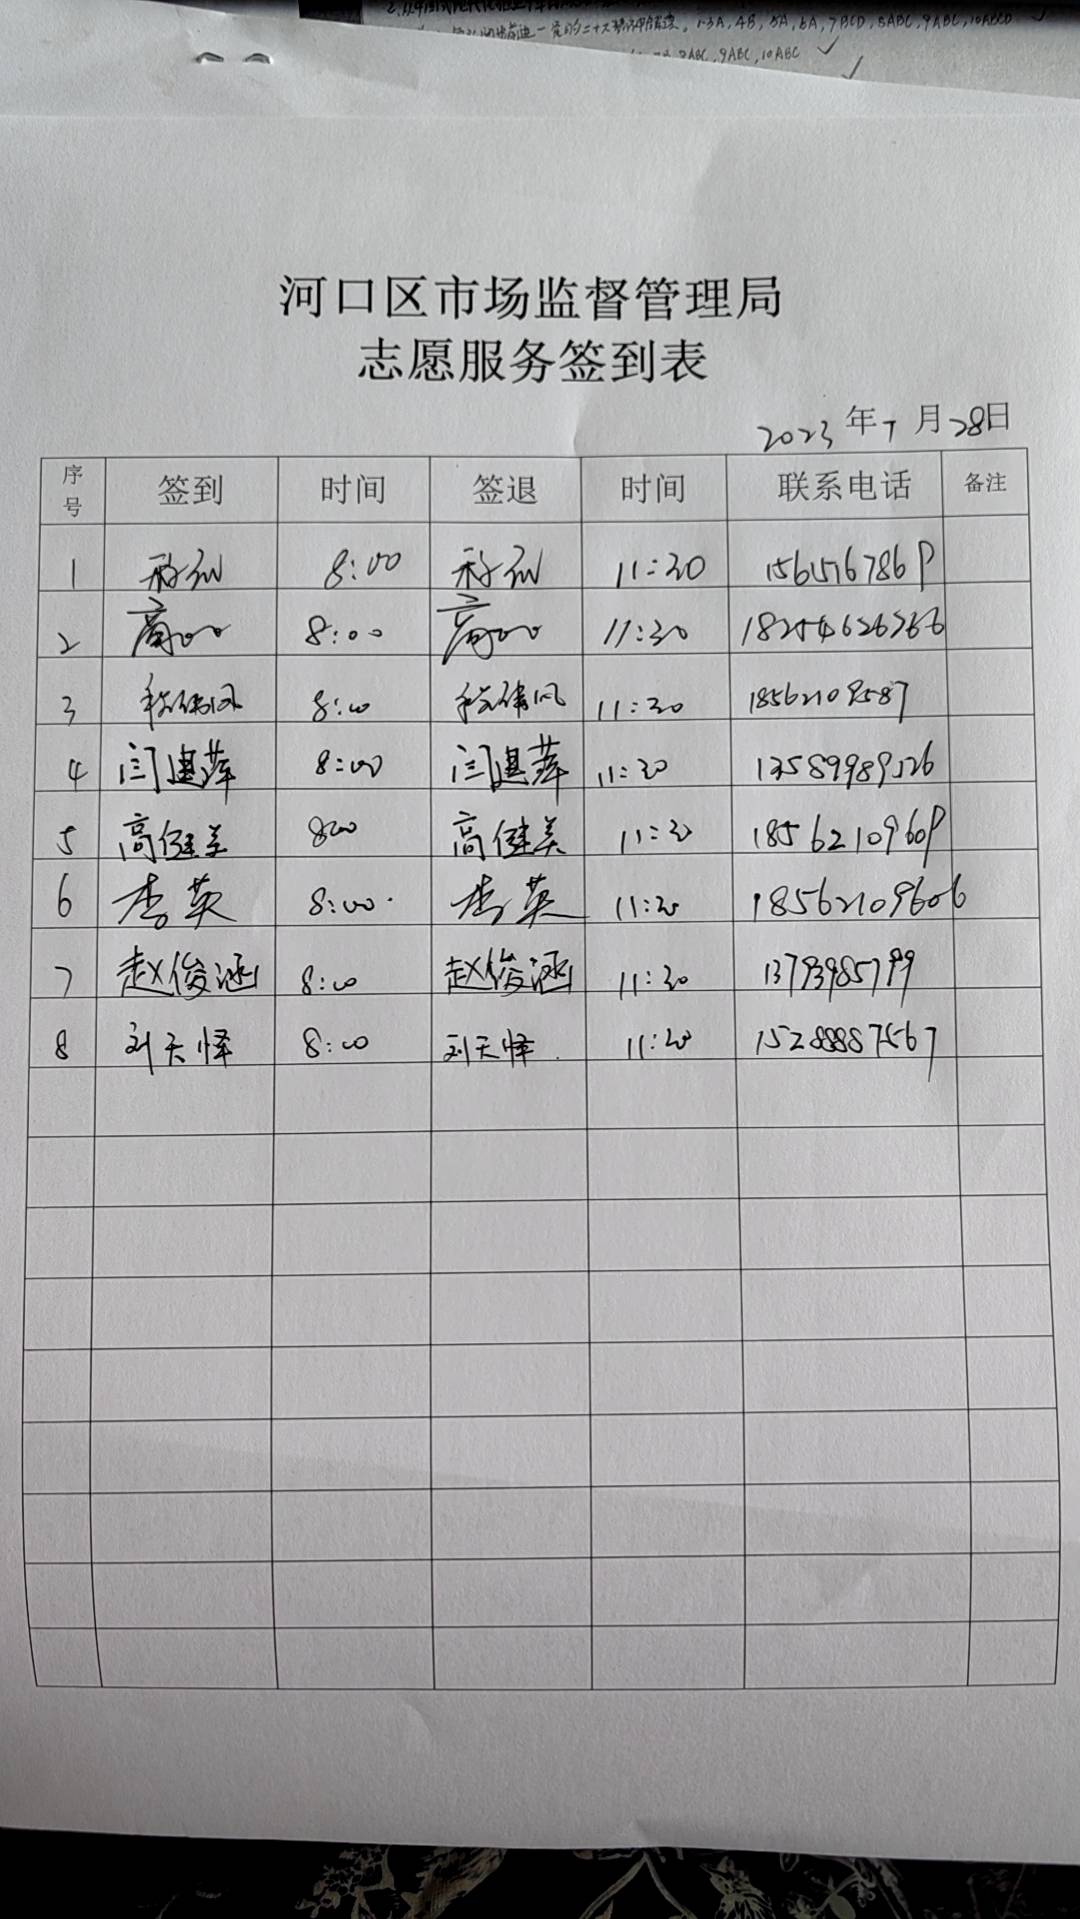 1-3A, 4B, 5A, 6A, 7BCD, 8ABC, 9ABC, 10ABCD
9ABC, 10ABC
河口区市场监督管理局
志愿服务签到表
2023 年 7 月 28 日
序号 签到 时间 签退 时间 联系电话 备注
1 8:00 11:30
2 高 8:00 11:30 18254626266
3 8:00 11:30 18562109587
4 闫建萍 8:00 闫建萍 11:30 13589989526
5 高健美 800 高健美 11:30 18562109609
6 李英 8:00 李英 11:30 18562109606
7 赵俊涵 8:00 赵俊涵 11:30 13793985799
8 刘天怿 8:00 刘天怿 11:30 15288887567